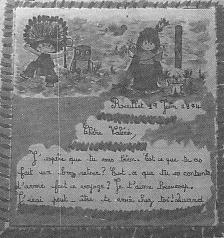 Rouillet 19 Juin 1974
Chère Valérie
J'espère que tu vas bien. Est ce que tu as
fait un bon retour? Est-ce que tu es contente
d'avoir fait ce voyage? Je t'aime beaucoup.
J'irai peut être te voir chez toi. Quand